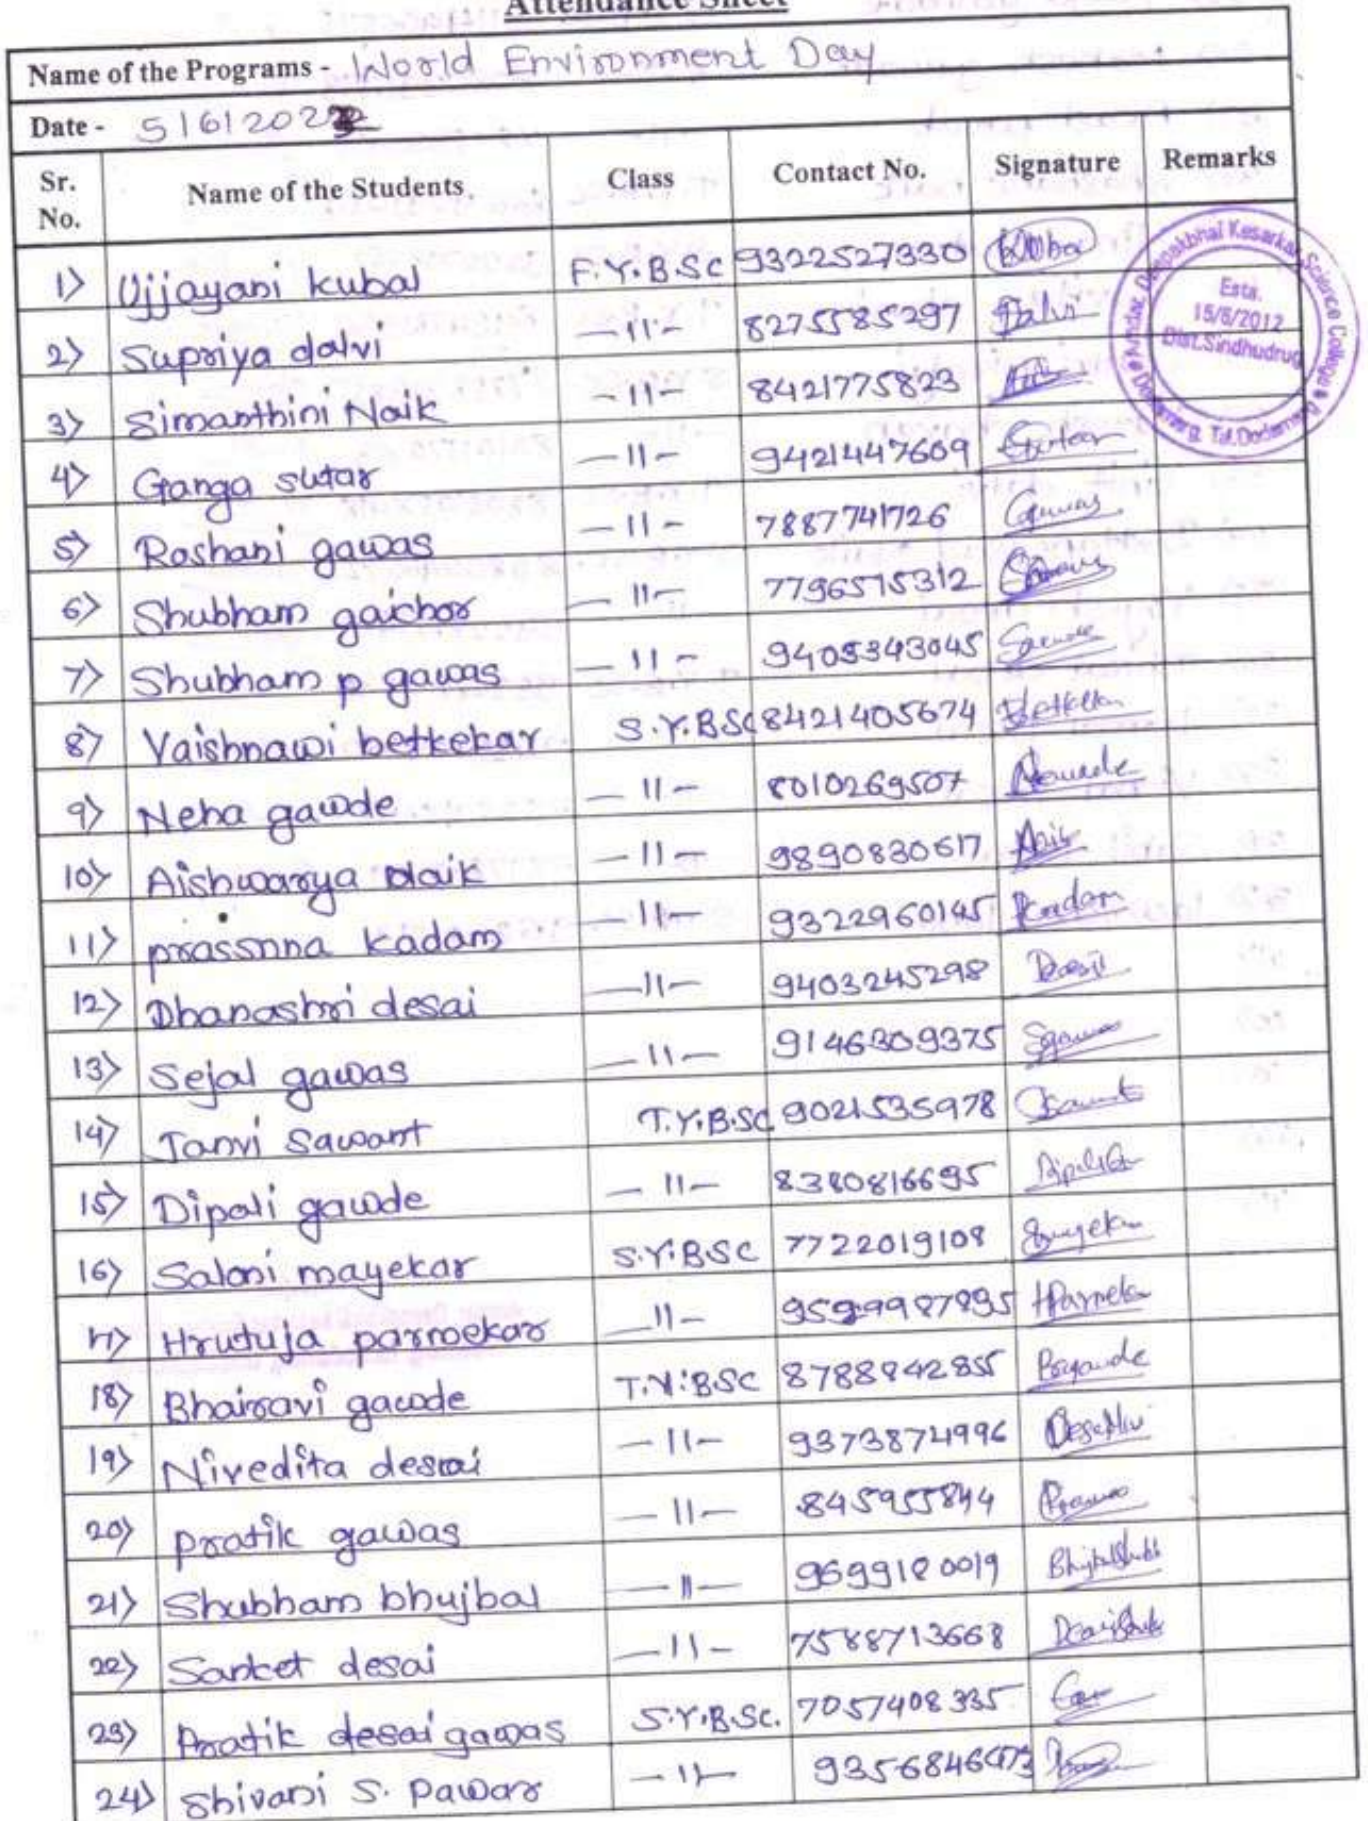 Attendance Sheet
Name of the Programs - World Environment Day
Date - 5/6/2022
Sr. No. Name of the Students. Class Contact No. Signature Remarks
1) Ujjayani kubal F.Y.B.Sc 9322527330
2) Supriya dalvi —11— 8275585297 Dalvi
3) Simanthini Naik —11— 8421775823
4) Ganga sutar —11— 9421447609 Gutar
5) Roshani gawas —11— 7887741726 Gawas
6) Shubham gaichor —11— 7796575312
7) Shubham p gawas —11— 9405343045
8) Vaishnawi betkekar S.Y.BSc 8421405674
9) Neha gawde —11— 8010269507
10) Aishwarya Naik —11— 9890830617
11) prassnna kadam —11— 9322960145 Kadam
12) Dhanashri desai —11— 9403245298 Desai
13) Sejal gawas —11— 9146309375 Sgawas
14) Tanvi Sawant T.Y.B.Sc 9021535978
15) Dipali gawde —11— 8380816695
16) Saloni mayekar S.Y.BSC 7722019108
17) Hrutuja parmekar —11—
18) Bhairavi gawde T.Y.BSC 8788842855
19) Nivedita desai —11— 9373874996
20) pratik gawas —11— 845955844
21) Shubham bhujbal —11— 9699180019
22) Sanket desai —11— 7588713668
23) Pratik desai gawas S.Y.B.SC. 7057408335
24) Shivani S. Pawar —11—
Amdar Deepakbhai Kesarkar Science College
Estd.
15/6/2012
Dist.Sindhudrug